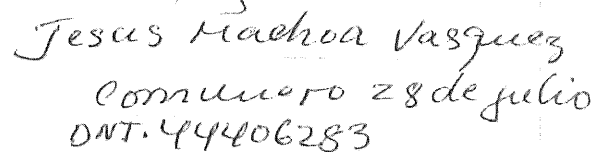 Jesus Machoa Vasquez
Comunero 28 de julio
DNI. 44406283